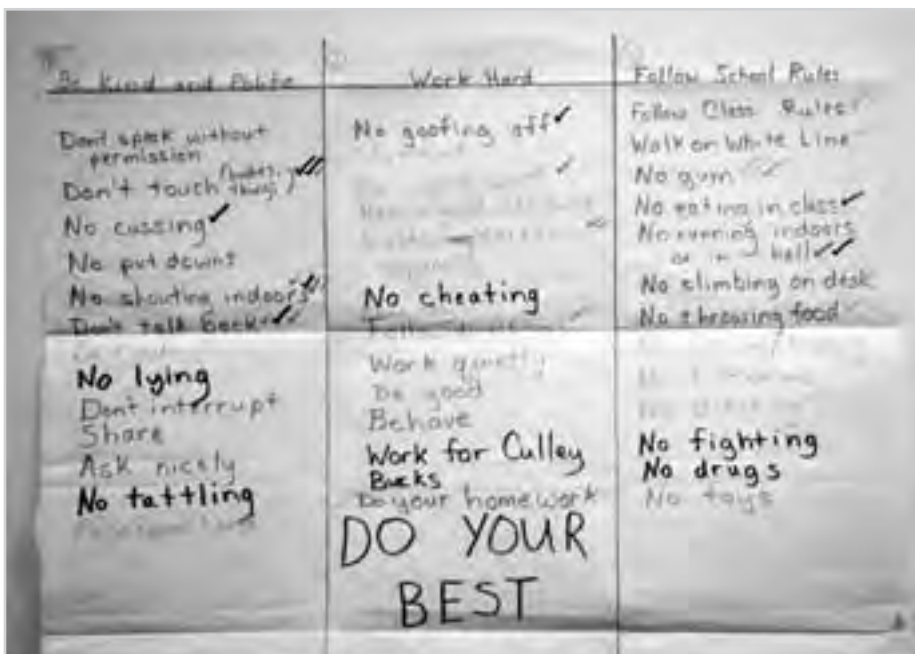 Be Kind and Polite
Don't speak without
permission
Don't touch (bodies,
things)
No cussing
No put downs
No shouting indoors
Don't talk back
No lying
Don't interrupt
Share
Ask nicely
No tattling
Work Hard
No goofing off
No cheating
Work quietly
Do good
Behave
Work for Culley
Bucks
Do your homework
DO YOUR
BEST
Follow School Rules
Follow Class Rules
Walk on White Line
No gum
No eating in class
No running indoors
or in hall
No climbing on desk
No throwing food
No fighting
No drugs
No toys